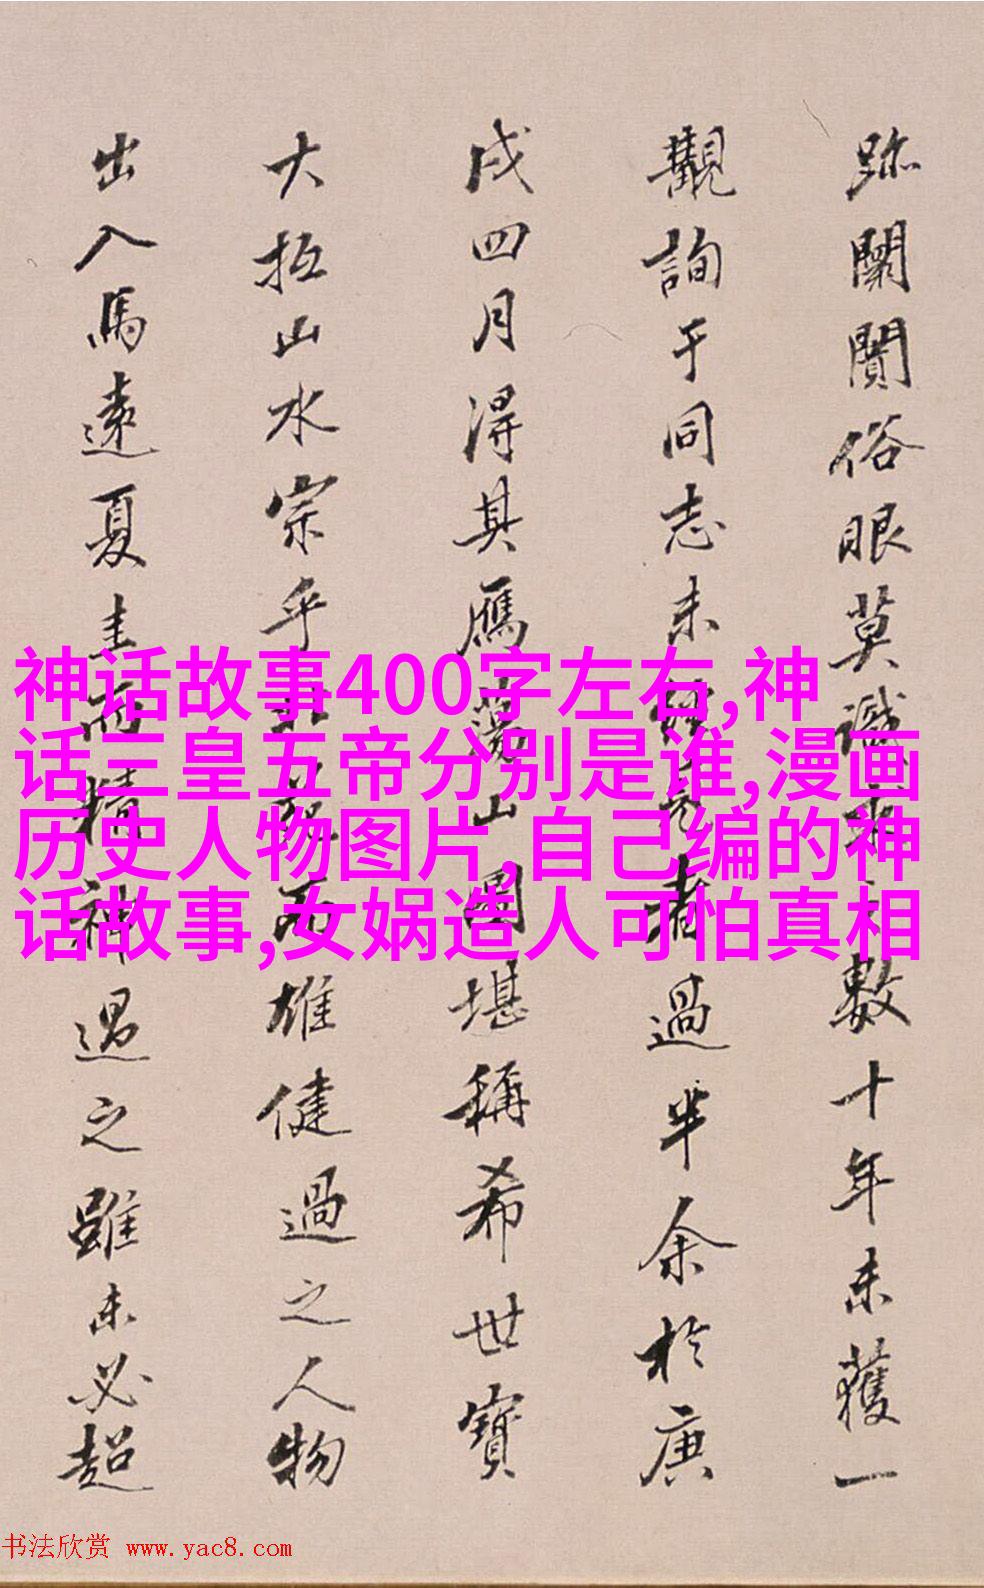 跡闤闠俗眼莫識數十年未獲一
觀詢于同志未經見者過半余於庚
戌四月淂其鴈蕩山圖堪稱希世寶
大抵山水宗乎北苑而雄健過之人物
出入馬遠夏圭而精神過之雖未必超
神话故事400字左右,神
话三皇五帝分别是谁,漫画
历史人物图片,自己编的神
话故事,女娲造人可怕真相
书法欣赏 www.yac8.com